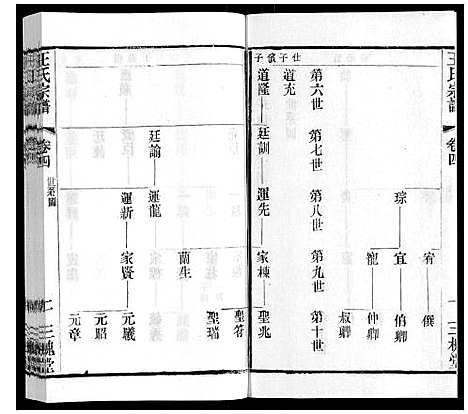 王氏宗譜
卷四
三槐堂
宥
僎
宜
伯卿
琮
寵
仲卿
叔卿
第六世
第七世
第八世
第九世
第十世
道充
道隆
廷訓
運先
家棟
聖兆
聖答
蘭生
聖瑞
廷諭
運龍
運新
家賢
元儀
元昭
元章
王氏宗譜
卷四
世系圖
三槐堂